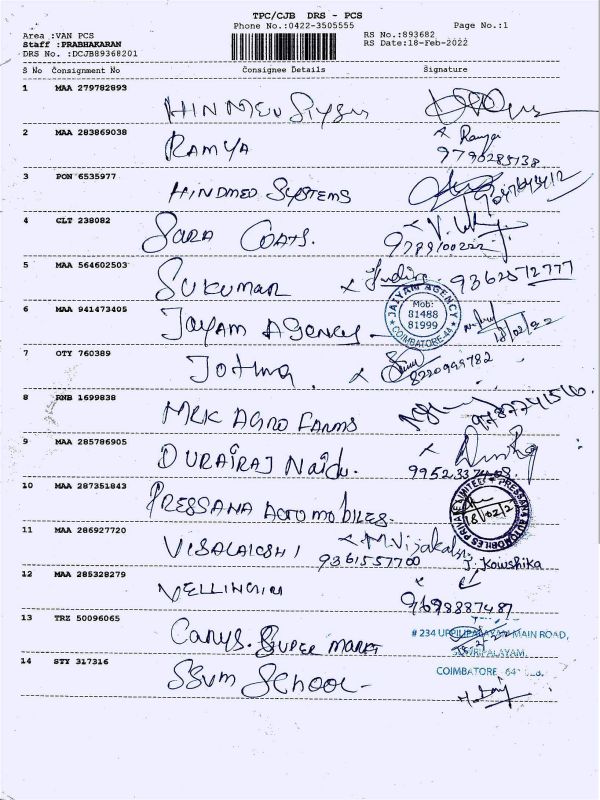 TPC/CJB DRS - PCS
Phone No.:0422-3505555 Page No.:1
Area :VAN PCS RS No.:893682
Staff :PRABHAKARAN RS Date:18-Feb-2022
DRS No. :DCJB89368201
S No Consignment No Consignee Details Signature
1 MAA 279782893 HINMED
2 MAA 283869038 RAMYA x Ramya
9790285138
3 PON 6535977 HINDMED SYSTEMS
4 CLT 238082 SARA COATS.
9789100222
5 MAA 564602503 SUKUMAR x 9362572777
6 MAA 941473405 JAYAM AGENCY
JAIYAM AGENCY
Mob:
81488
81999
COIMBATORE-44
18/02/22
7 OTY 760389 x
8220999782
8 RNB 1699838 MRK AGRO FARMS 9787741516
9 MAA 285786905 DURAIRAJ Naidu. x
10 MAA 287351843 PRESSANA AUTOMOBILES.
PRESSANA AUTOMOBILES PRIVATE LIMITED
18/02/2
11 MAA 286927720 VISALAKSHI x
9361557700 J. Kowshika
12 MAA 285328279 VELLINGIRI x
9698887487
13 TRZ 50096065 Carys. SUPER MARKT
# 234 UPPILIPALAYAM MAIN ROAD,
COIMBATORE
14 STY 317316 SSVM SCHOOL -